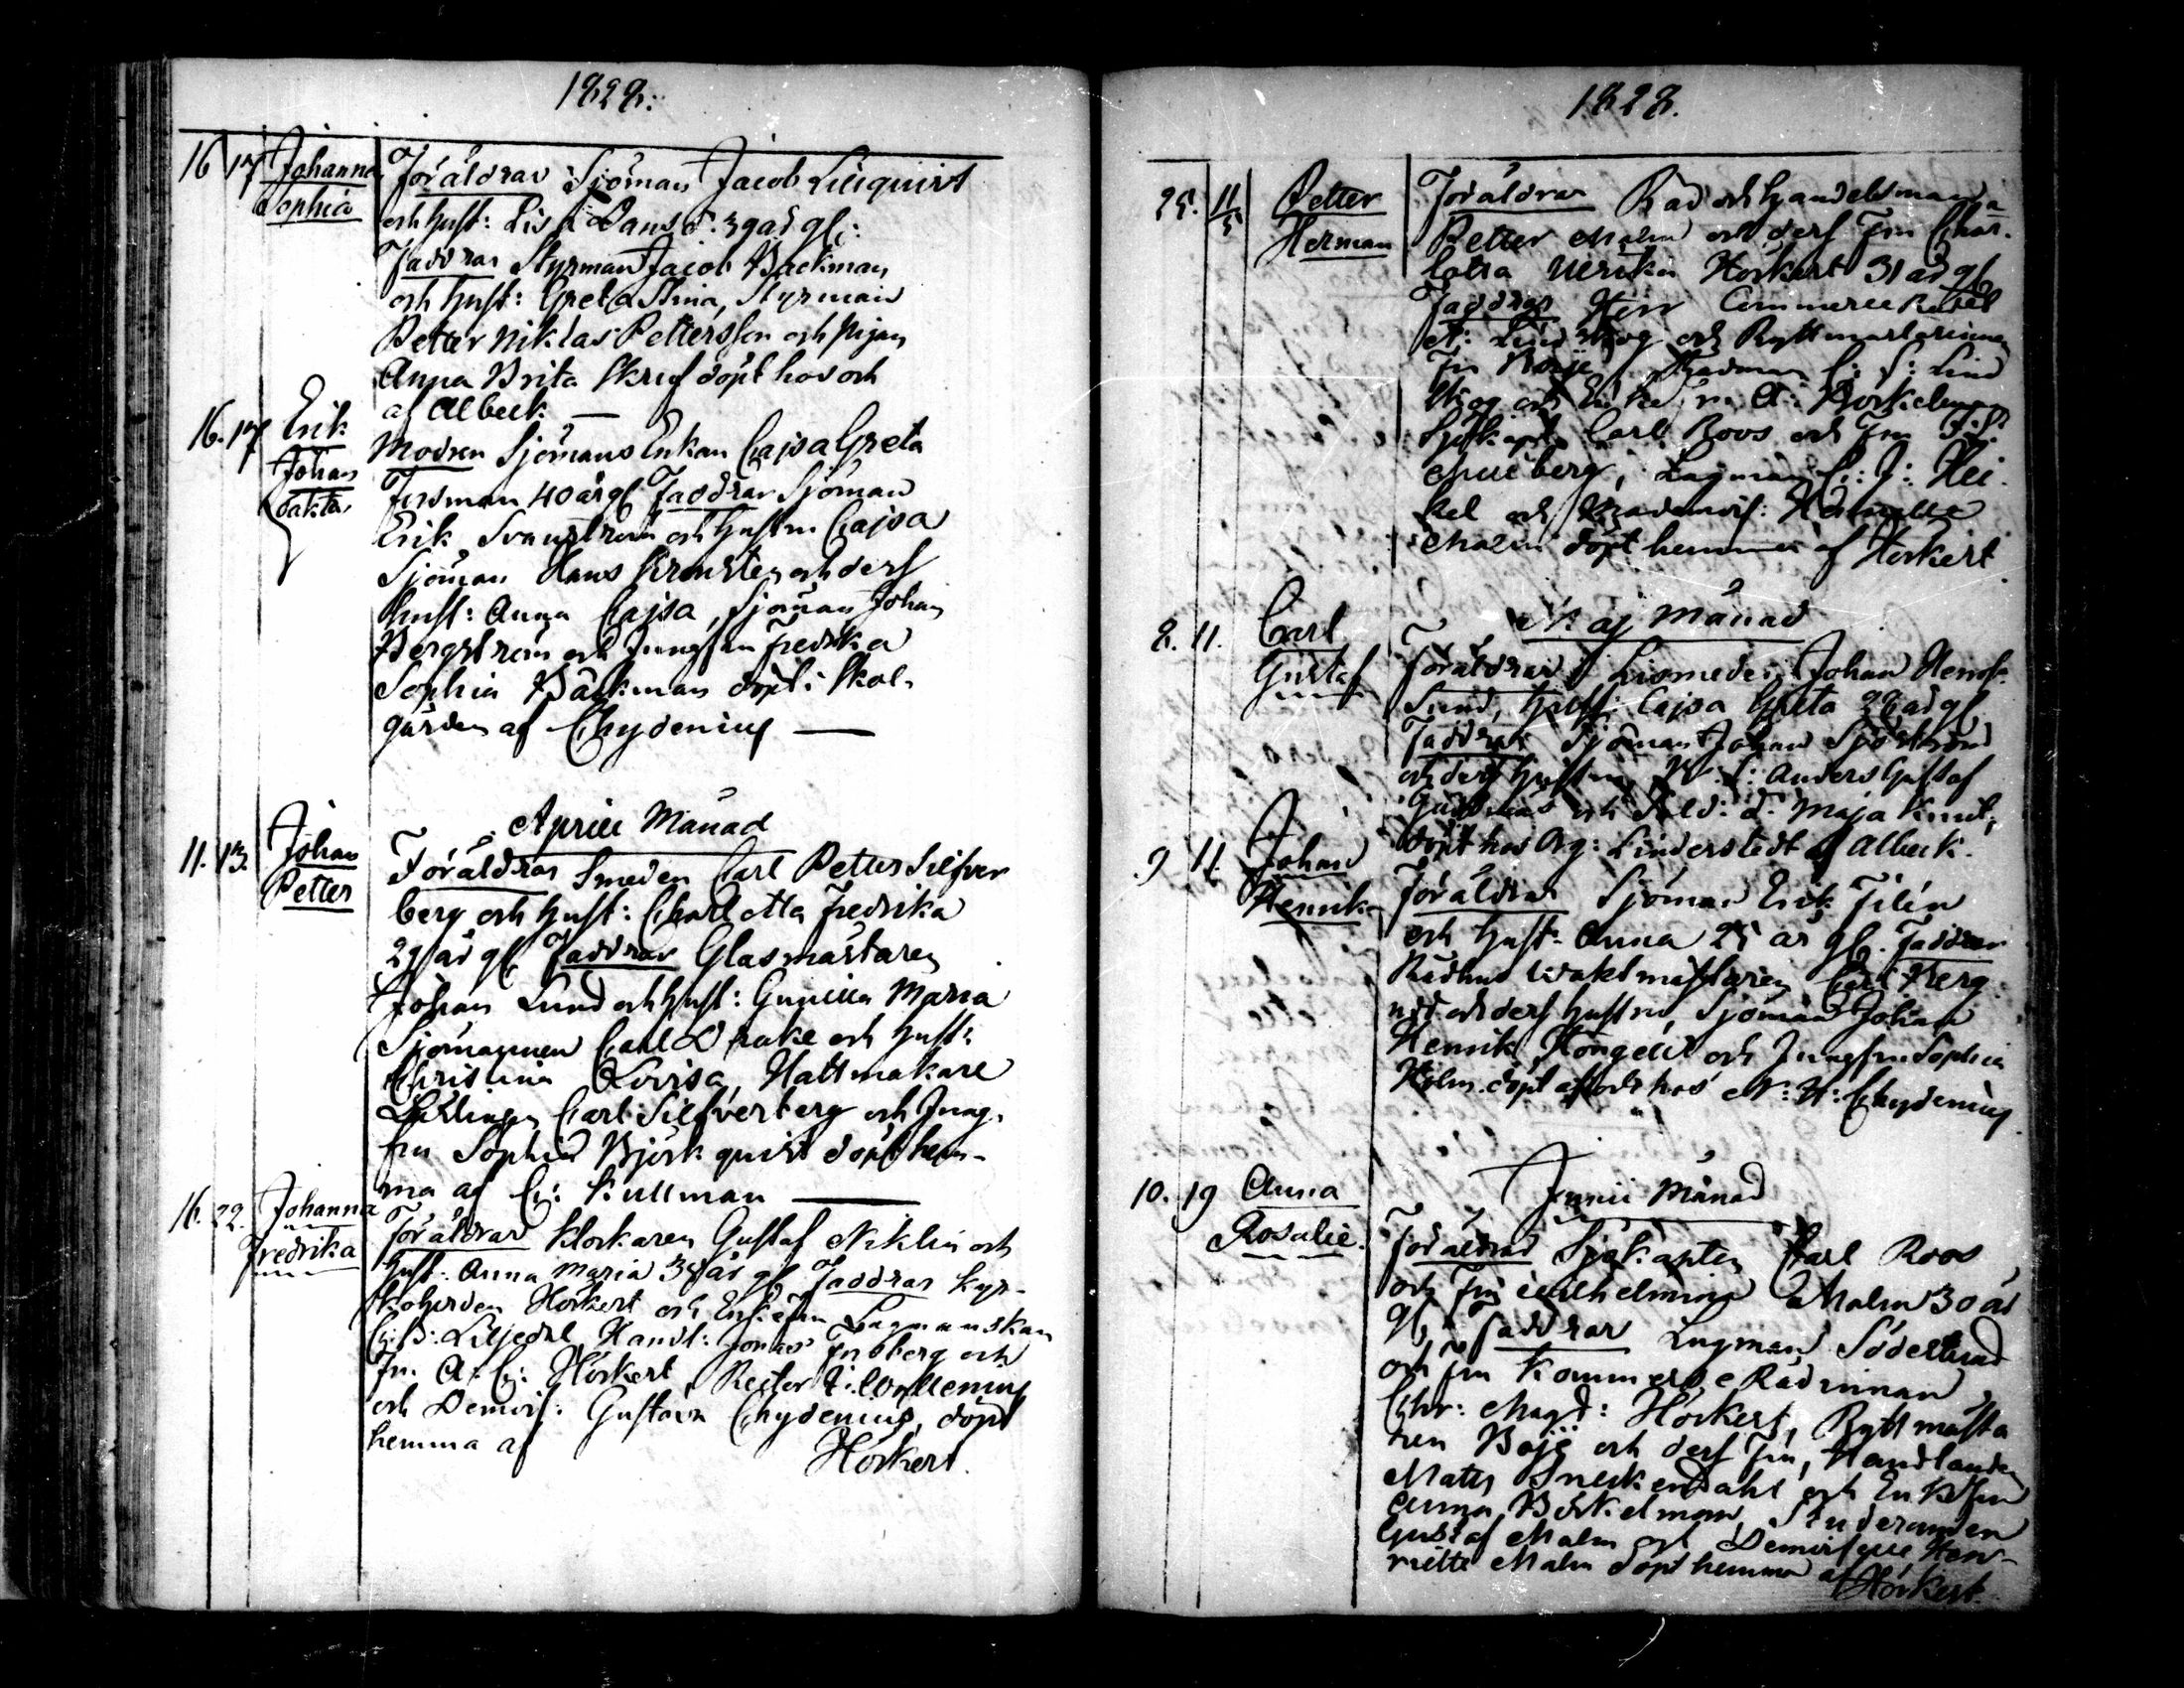 1828.
16 17 Johanna Sophia
Föräldrar Sjöman Jacob Liliquist
och Hust: Lisa Hans d: 39 år gl:
Faddrar Styrman Jacob Backman
och hust: Greta Stina, Styrman
Petter Niklas Pettersson och pigan
Anna Brita Skruf döpt hos och
af Albeck —
16. 17 Erik Johan oäkta
Modren Sjömans Enkan Cajsa Greta
Forsman 40 år gl Faddrar Sjöman
Erik Svanström och hustru Cajsa
Sjöman Hans Kronsten och dess
hust: Anna Cajsa, Sjöman Johan
Bergström och Jungfru Fredrika
Sophia Bäckman döpt i Skol-
gården af Chydenius —
Aprill Månad
11. 13. Johan Petter
Föräldrar Smeden Carl Petter Silfver
berg och hust: Charlotta Fredrika
29 år gl Faddrar Glasmästaren
Johan Lund och hust: Gunilla Maria
Sjömannen Carl Drake och hust:
Christina Lovisa, Hattmakare
Lärlingen Carl Silfverberg och Jung-
fru Sophia Björkquist döpt hem-
ma af C: Kullman —
16. 22. Johanna Fredrika
Föräldrar Klockaren Gustaf Niklin och
hust: Anna Maria 38 år gl Faddrar Kyr-
koherden Hörkert och Enkefru Lagmanskan
Liljedal Handl: Jonas Forsberg och
Fru A: C: Hörkert, Rector
och Demois: Gustava Chydenius, döpt
hemma af Hörkert.
1828.
25. 11/5 Petter Herman
Föräldrar Råd och Handelsman
Petter Malm och dess Fru Char-
lotta Ulrika Hörkert 31 år gl
Faddrar Herr Commerce Rådet
A: Lindskog och Ryttmästarinnan
Fru Boije, Rådman C: S: Lind
skog och Enkefru A: Borkelman
Sjökapt: Carl Roos och Fru
Muleberg, Lagman C: J: Hei-
kel och Mademois: Henriette
Malm döpt hemma af Hörkert
Maj Månad
8. 11. Carl Gustaf
Föräldrar Johan Henrik
Sund, hust: Cajsa Greta 28 år gl
Faddrar Sjöman Johan Sjöström
och dess hustru, Anders Gustaf
och Sold: d: Maja Knut,
döpt hos Org: Linderstedt af Albeck.
9 11. Johan Henrik
Föräldrar Sjöman Erik Filén
och hust: Anna 25 år gl. Faddrar
Rådhus Waktmästaren Carl Berg
och dess hustru, Sjöman Johan
Henrik Höngelin och Jungfru Sophia
Holm döpt af och hos N: H: Chydenius
Junii Månad
10. 19 Anna Rosalie.
Föräldrar Sjökapten Carl Roos
och Fru Wilhelmina Malm 30 år
gl, Faddrar Lagman Söderstrand
och Fru Kommerce Rådinnan
Chr: Magd: Hörkert, Ryttmästa
ren Boije och dess Fru, Handlanden
Mats Sneckendahl och Enkefru
Anna Borkelman, Studeranden
Gustaf Malm och Demoiselle Hen-
riette Malm döpt hemma af
Hörkert.